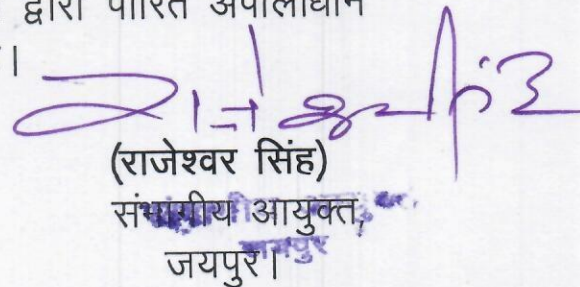 द्वारा पारित अपीलाधीन
।
(राजेश्वर सिंह)
संभागीय आयुक्त,
जयपुर।
जयपुर